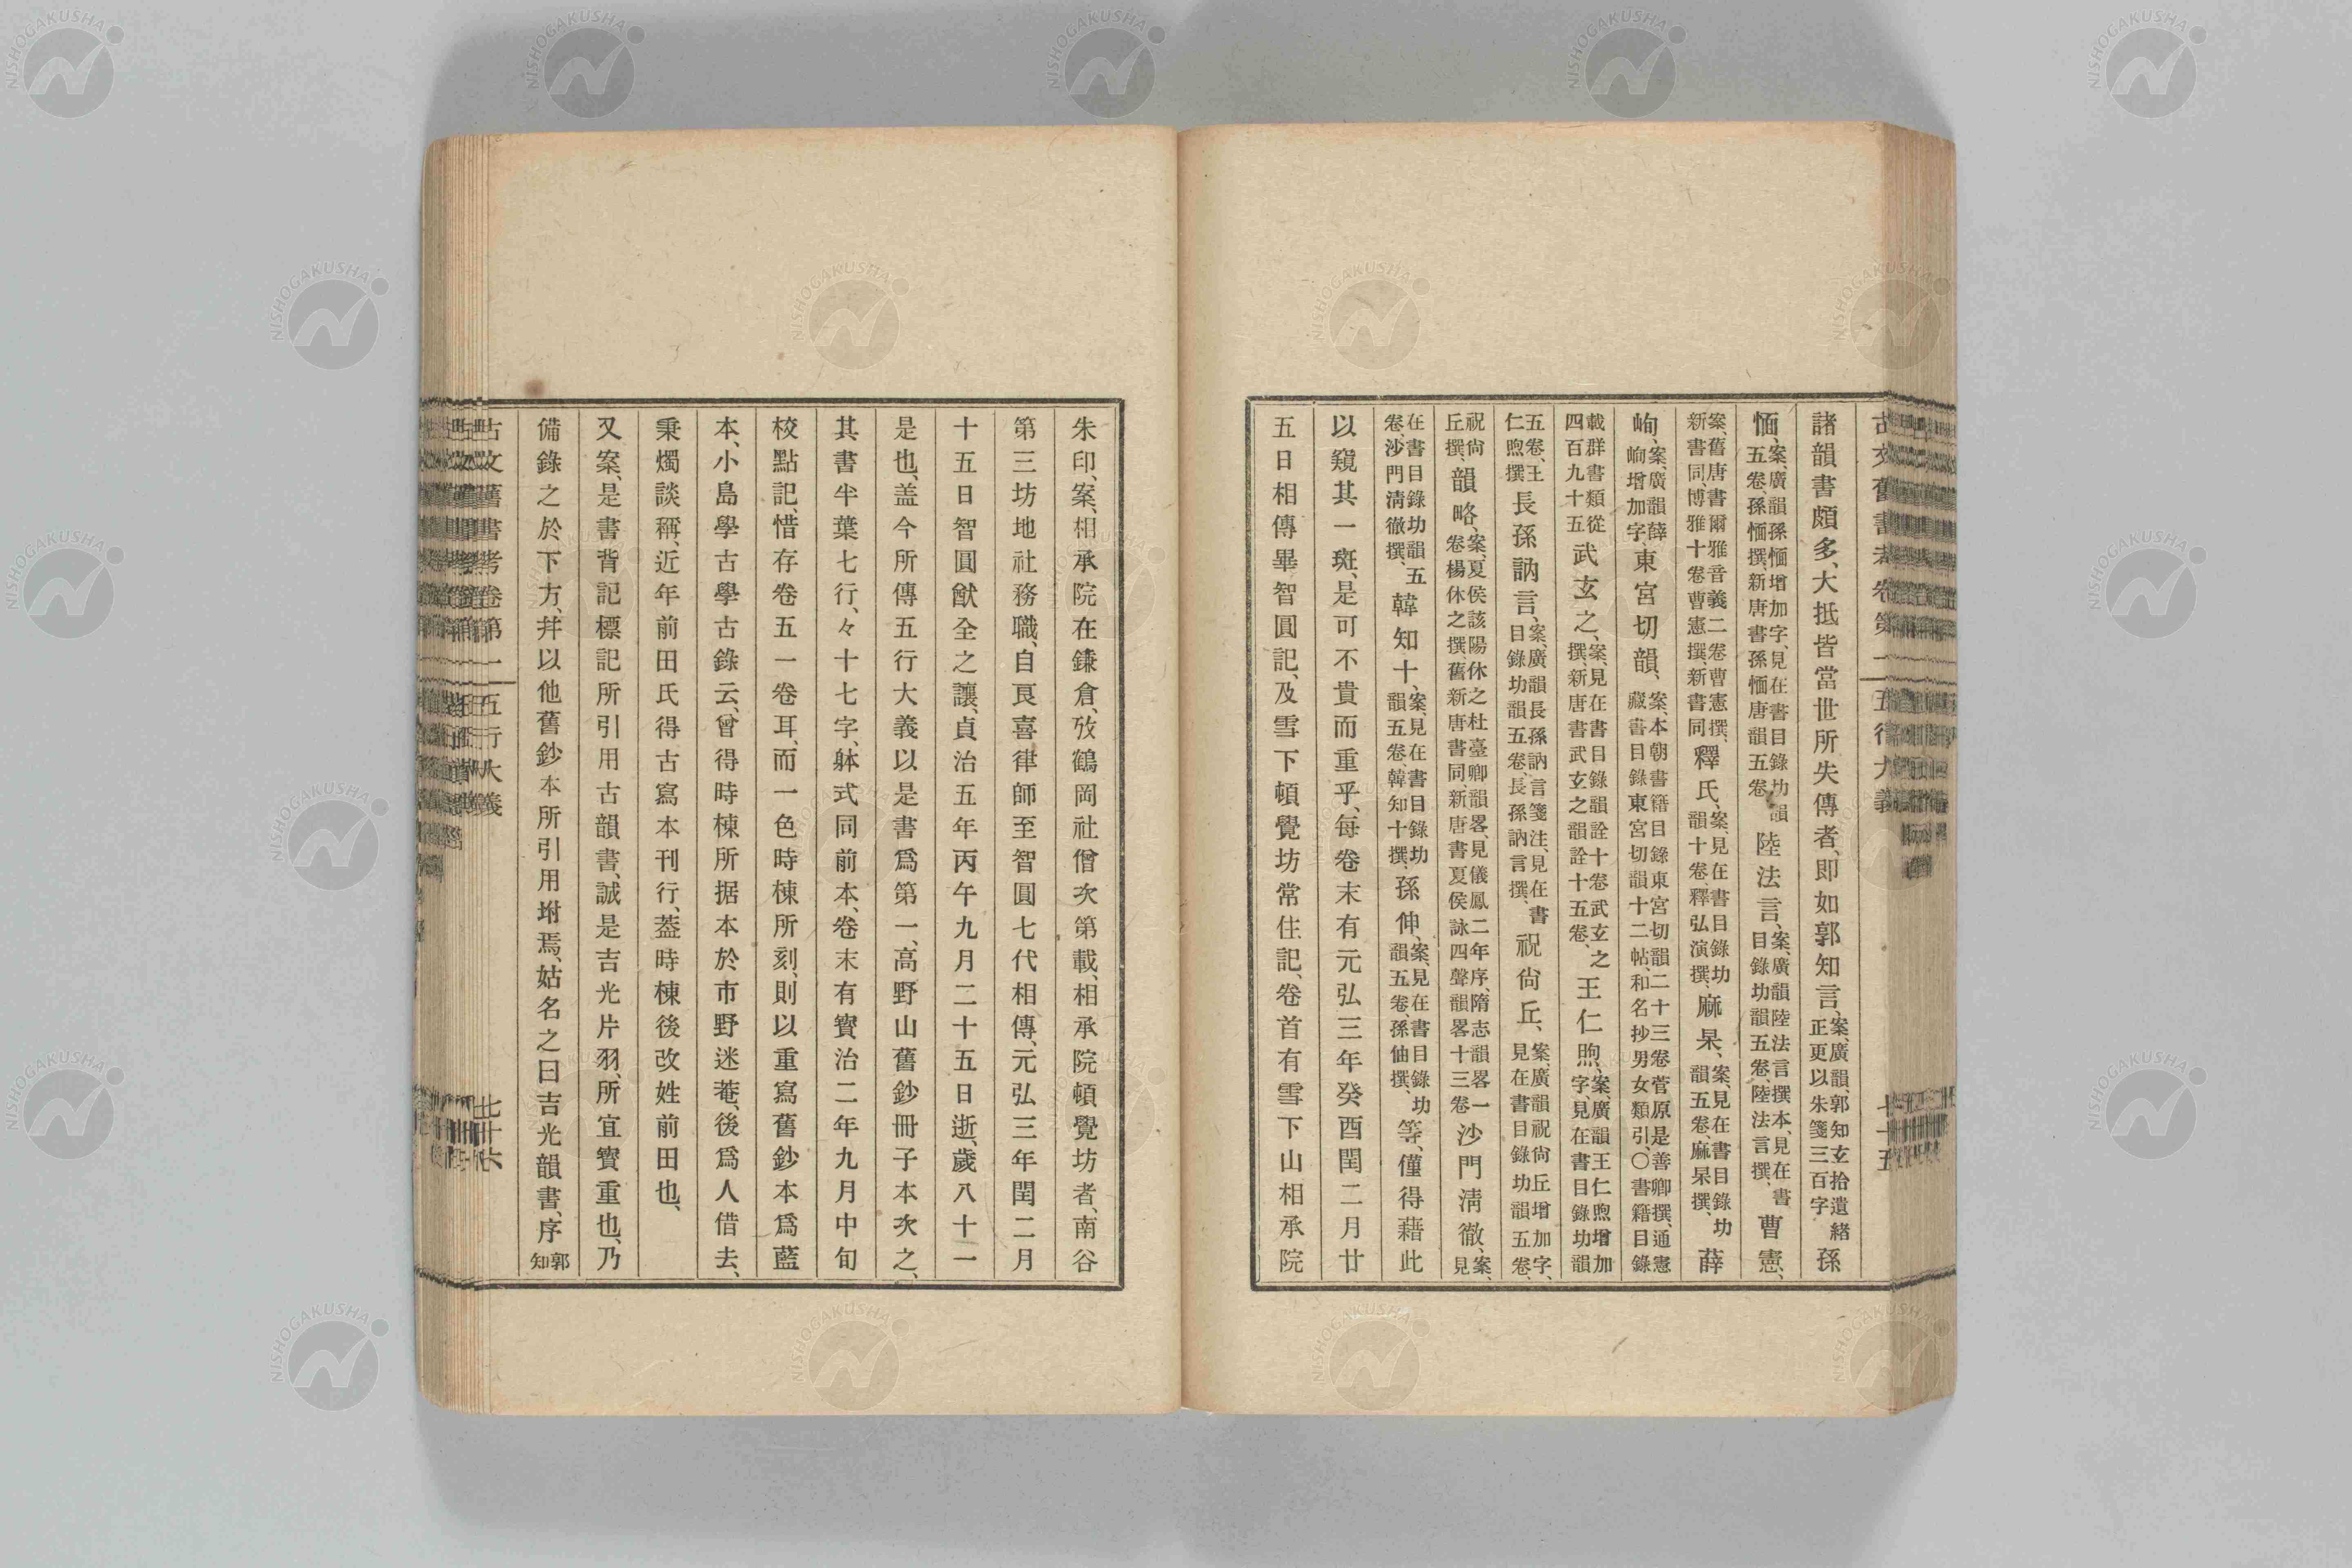 古文舊書考卷第一 五行大義 七十五
諸韻書頗多、大抵皆當世所失傳者、即如郭知言、案、廣韻、郭知玄拾遺緒正更以朱箋三百字 孫
愐、案、廣韻孫愐增加字、見在書目錄、切韻五卷孫愐撰、新唐書孫愐唐韻五卷、 陸法言、案、廣韻陸法言撰本、見在書目錄切韻五卷、陸法言撰、 曹憲、
案、舊唐書爾雅音義二卷曹憲撰、新書同、博雅十卷曹憲撰、新書同 釋氏、案、見在書目錄切韻十卷、釋弘演撰、 麻杲、案、見在書目錄切韻五卷麻杲撰、 薛
峋、案、廣韻薛峋增加字、 東宮切韻、案、本朝書籍目錄東宮切韻二十三卷菅原是善卿撰、通憲藏書目錄東宮切韻十二帖、和名抄男女類引、〇書籍目錄
載群書類從四百九十五 武玄之、案、見在書目錄韻詮十卷武玄之撰、新唐書武玄之韻詮十五卷、 王仁煦、案、廣韻王仁煦增加字、見在書目錄切韻
五卷、王仁煦撰 長孫訥言、案、廣韻長孫訥言箋注、見在書目錄切韻五卷、長孫訥言撰、 祝尙丘、案、廣韻祝尙丘增加字、見在書目錄切韻五卷、
祝尙丘撰、 韻略、案、夏侯該陽休之杜臺卿韻畧、見儀鳳二年序、隋志韻畧一卷楊休之撰、舊新唐書同、新唐書夏侯詠四聲韻畧十三卷 沙門淸徹、案、見
在書目錄切韻五卷、沙門淸徹撰、 韓知十、案、見在書目錄切韻五卷、韓知十撰、 孫伷、案、見在書目錄切韻五卷、孫伷撰、 等、僅得藉此
以窺其一斑、是可不貴而重乎、每卷末有元弘三年癸酉閏二月廿
五日相傳畢智圓記、及雪下頓覺坊常住記、卷首有雪下山相承院
朱印、案、相承院在鎌倉、攷鶴岡社僧次第載、相承院頓覺坊者、南谷
第三坊地社務職、自良喜律師至智圓七代相傳、元弘三年閏二月
十五日智圓猷全之讓、貞治五年丙午九月二十五日逝、歲八十一
是也、盖今所傳五行大義以是書爲第一、高野山舊鈔冊子本次之、
其書半葉七行、々十七字、躰式同前本、卷末有寶治二年九月中旬
校點記、惜存卷五一卷耳、而一色時棟所刻、則以重寫舊鈔本爲藍
本、小島學古學古錄云、曾得時棟所据本於市野迷菴、後爲人借去、
秉燭談稱、近年前田氏得古寫本刊行、葢時棟後改姓前田也、
又案、是書背記標記所引用古韻書、誠是吉光片羽、所宜寶重也、乃
備錄之於下方、幷以他舊鈔本所引用坿焉、姑名之曰吉光韻書、序 郭知
古文舊書考卷第一 五行大義 七十六